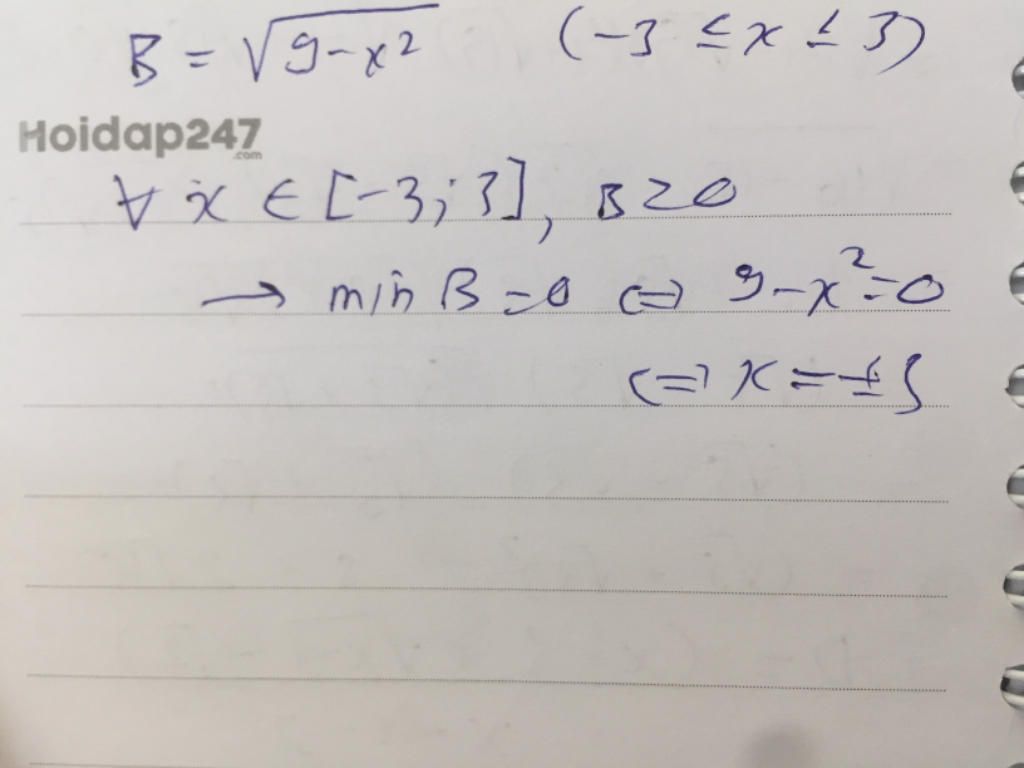 B = √(9-x²) (-3 ≤ x ≤ 3)
Hoidap247
.com
∀ x ∈ [-3; 3], B ≥ 0
→ min B = 0 ⇔ 9-x² = 0
⇔ x = ±3